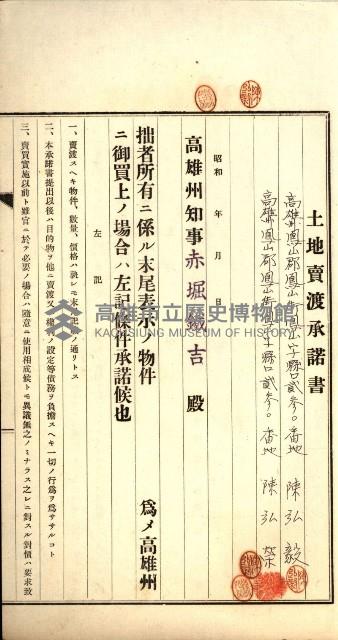 土地賣渡承諾書
高雄州鳳山郡鳳山街鳳山字縣口貳參〇番地 陳弘毅
高雄州鳳山郡鳳山街鳳山字縣口貳參〇番地 陳弘榮
昭和 年 月 日
高雄州知事赤堀鐵吉 殿
拙者所有ニ係ル末尾表示ノ物件 爲メ高雄州
ニ御買上ノ場合ハ左記條件承諾候也
左記
一、賣渡スヘキ物件、數量、價格ハ孰レモ末尾記載ノ通リトス
二、本承諾書提出以後ハ目的物ヲ他ニ賣渡又ハ權利ノ設定等債務ヲ負擔スヘキ一切ノ行爲ヲ爲ササルコト
三、賣買實施以前ト雖官ニ於テ必要ノ場合ハ隨意ニ使用相成候トモ異議無之ノミナラス之レニ對スル對價ハ要求致
高雄市立歷史博物館
KAOHSIUNG MUSEUM OF HISTORY